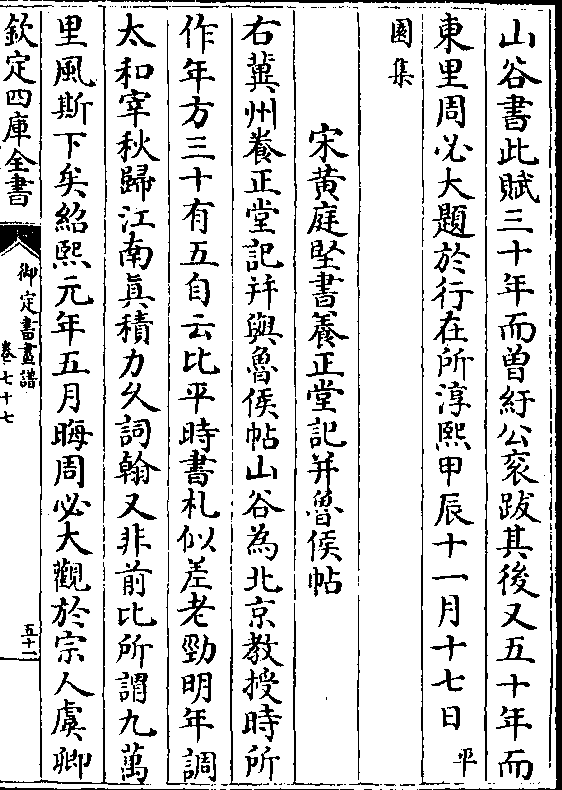 山谷書此賦三十年而曾紆公衮跋其後又五十年而
東里周必大題於行在所淳熙甲辰十一月十七日平
園集
宋黃庭堅書養正堂記并魯侯帖
右冀州養正堂記并與魯侯帖山谷為北京教授時所
作年方三十有五自云比平時書札似差老勁明年調
太和宰秋歸江南真積力久詞翰又非前比所謂九萬
里風斯下矣紹熙元年五月晦周必大觀於宗人虞卿
欽定四庫全書
御定書畫譜
卷七十七
五十二